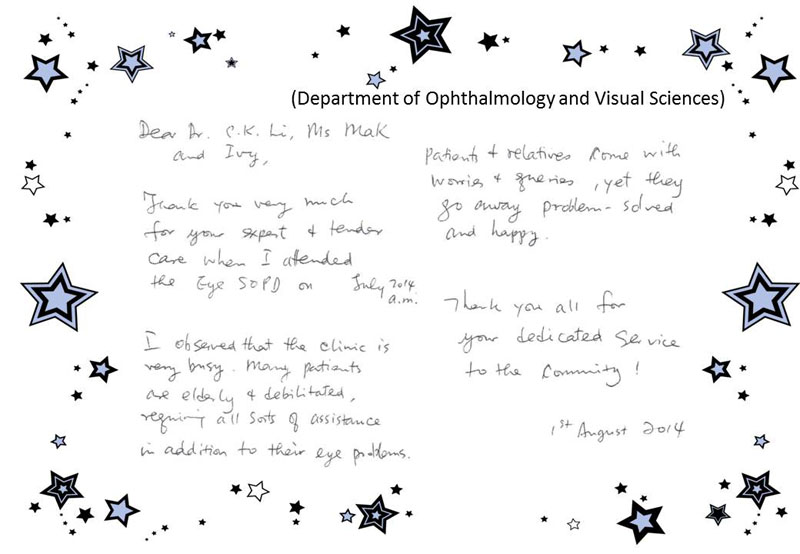 (Department of Ophthalmology and Visual Sciences)
Dear Dr. C.K. Li, Ms Mak
and Ivy,
Thank you very much
for your expert & tender
care when I attended
the Eye SOPD on July 2014
a.m.
I observed that the clinic is
very busy. Many patients
are elderly & debilitated,
requiring all sorts of assistance
in addition to their eye problems.
Patients & relatives come with
worries & queries, yet they
go away problem-solved
and happy.
Thank you all for
your dedicated service
to the Community!
1st August 2014